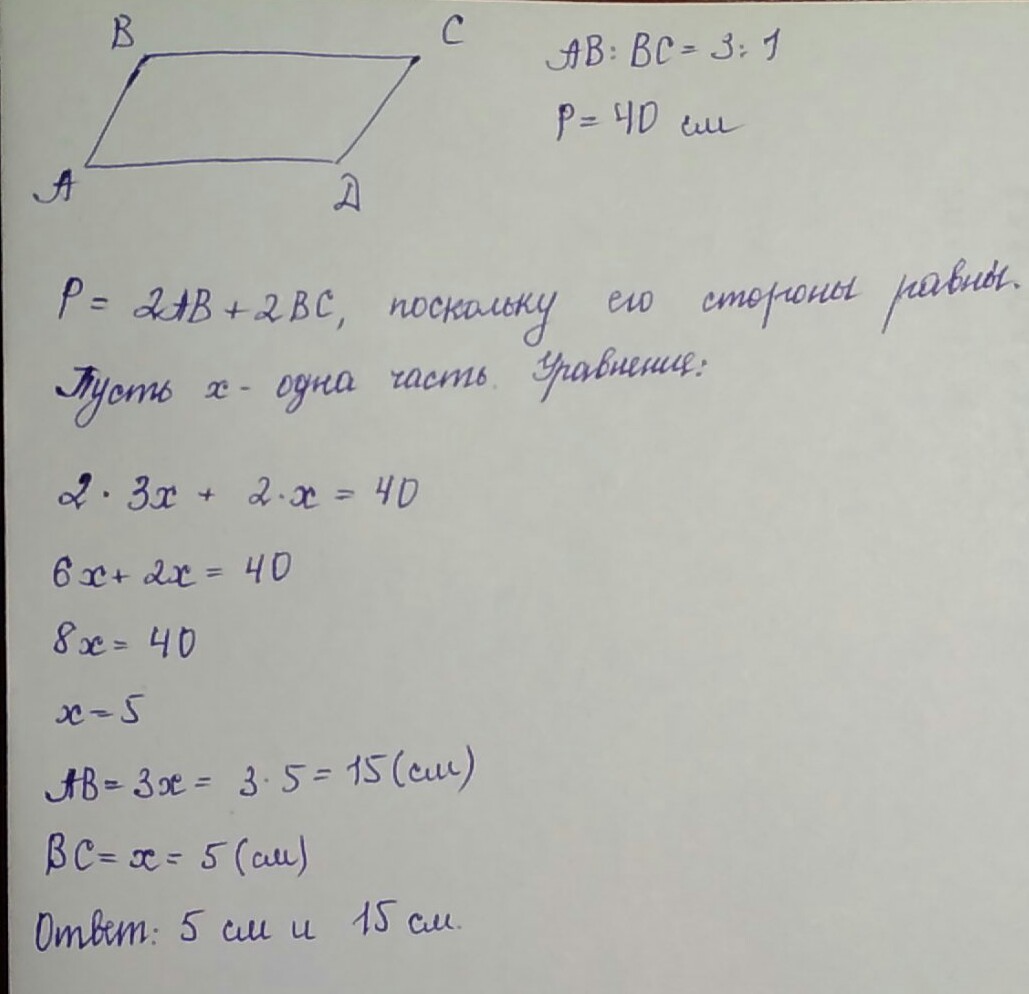 B C
AB : BC = 3 : 1
P = 40 см
A D
P = 2AB + 2BC, поскольку его стороны равны.
Пусть x - одна часть. Уравнение:
2 · 3x + 2 · x = 40
6x + 2x = 40
8x = 40
x = 5
AB = 3x = 3 · 5 = 15 (см)
BC = x = 5 (см)
Ответ: 5 см и 15 см.